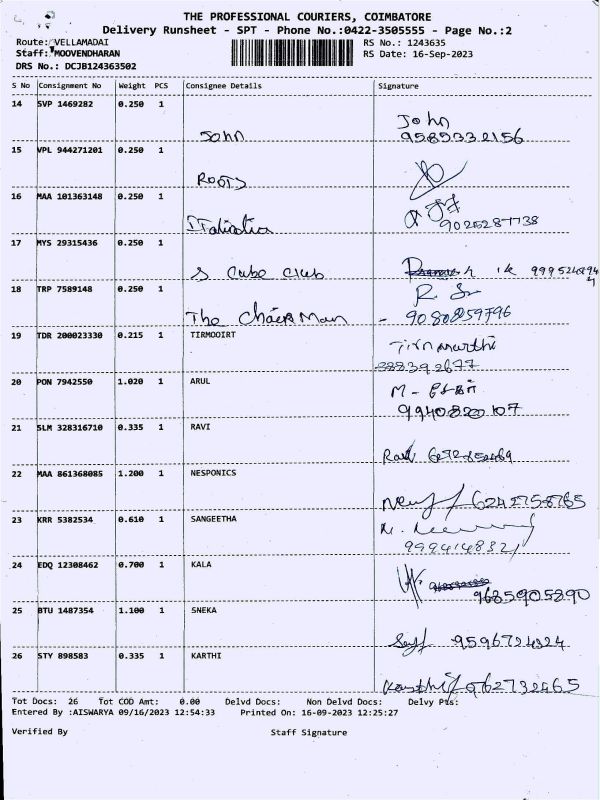 THE PROFESSIONAL COURIERS, COIMBATORE
Delivery Runsheet - SPT - Phone No.:0422-3505555 - Page No.:2
Route: VELLAMADAI RS No.: 1243635
Staff: MOOVENDHARAN RS Date: 16-Sep-2023
DRS No.: DCJB124363502
S No Consignment No Weight PCS Consignee Details Signature
14 SVP 1469282 0.250 1
John
John 9585332156
15 VPL 944271201 0.250 1
ROOTS
16 MAA 101363148 0.250 1
9025287738
17 MYS 29315436 0.250 1
S Cube Club
18 TRP 7589148 0.250 1
The Chair Man
R. S
9080859796
19 TDR 200023330 0.215 1 TIRMOOIRT
Tirumurthi
20 PON 7942550 1.020 1 ARUL
M -
9940820107
21 SLM 328316710 0.335 1 RAVI
Ravi
22 MAA 861368085 1.200 1 NESPONICS
6242758765
23 KRR 5382534 0.610 1 SANGEETHA
9994148321
24 EDQ 12308462 0.700 1 KALA
9685905890
25 BTU 1487354 1.100 1 SNEKA
9596724324
26 STY 898583 0.335 1 KARTHI
Karthi 962732465
Tot Docs: 26 Tot COD Amt: 0.00 Delvd Docs: Non Delvd Docs: Delvy Pts:
Entered By :AISWARYA 09/16/2023 12:54:33 Printed On: 16-09-2023 12:25:27
Verified By Staff Signature